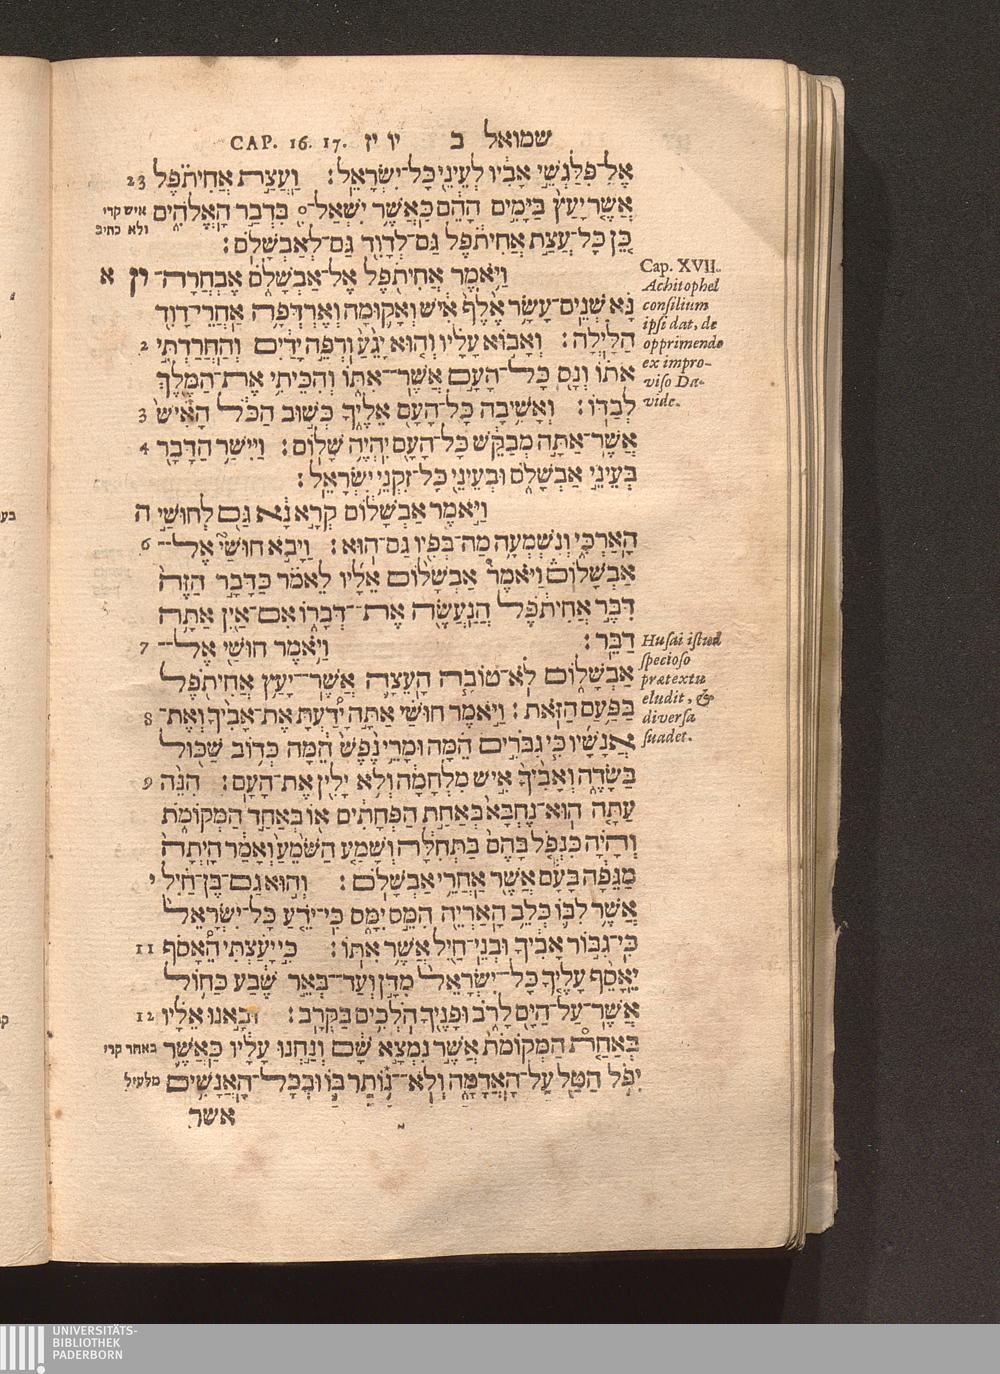 CAP. 16. 17. שמואל ב יו יז
אֶל־פִּלַגְשֵׁי אָבִיו לְעֵינֵי כָּל־יִשְׂרָאֵל׃ וַעֲצַת אֲחִיתֹפֶל 23
אֲשֶׁר יָעַץ בַּיָּמִים הָהֵם כַּאֲשֶׁר יִשְׁאַל־ ֯ בִּדְבַר הָאֱלֹהִים איש קרי
ולא כתיב
כֵּן כָּל־עֲצַת אֲחִיתֹפֶל גַּם־לְדָוִד גַּם־לְאַבְשָׁלֹם׃
וַיֹּאמֶר אֲחִיתֹפֶל אֶל־אַבְשָׁלֹם אֶבְחֲרָה־ יז א
נָּא שְׁנֵים־עָשָׂר אֶלֶף אִישׁ וְאָקוּמָה וְאֶרְדְּפָה אַחֲרֵי־דָוִד
הַלָּיְלָה׃ וְאָבוֹא עָלָיו וְהוּא יָגֵעַ וּרְפֵה יָדַיִם וְהַחֲרַדְתִּי 2
אֹתוֹ וְנָס כָּל־הָעָם אֲשֶׁר־אִתּוֹ וְהִכֵּיתִי אֶת־הַמֶּלֶךְ
לְבַדּוֹ׃ וְאָשִׁיבָה כָל־הָעָם אֵלֶיךָ כְּשׁוּב הַכֹּל הָאִישׁ 3
אֲשֶׁר־אַתָּה מְבַקֵּשׁ כָּל־הָעָם יִהְיֶה שָׁלוֹם׃ וַיִּישַׁר הַדָּבָר 4
בְּעֵינֵי אַבְשָׁלֹם וּבְעֵינֵי כָּל־זִקְנֵי יִשְׂרָאֵל׃
וַיֹּאמֶר אַבְשָׁלוֹם קְרָא נָא גַּם לְחוּשַׁי ה
הָאַרְכִּי וְנִשְׁמְעָה מַה־בְּפִיו גַּם־הוּא׃ וַיָּבֹא חוּשַׁי אֶל־ 6
אַבְשָׁלוֹם וַיֹּאמֶר אַבְשָׁלוֹם אֵלָיו לֵאמֹר כַּדָּבָר הַזֶּה
דִּבֶּר אֲחִיתֹפֶל הֲנַעֲשֶׂה אֶת־דְּבָרוֹ אִם־אַיִן אַתָּה
דַבֵּר׃ וַיֹּאמֶר חוּשַׁי אֶל־ 7
אַבְשָׁלוֹם לֹא־טוֹבָה הָעֵצָה אֲשֶׁר־יָעַץ אֲחִיתֹפֶל
בַּפַּעַם הַזֹּאת׃ וַיֹּאמֶר חוּשַׁי אַתָּה יָדַעְתָּ אֶת־אָבִיךָ וְאֶת־ 8
אֲנָשָׁיו כִּי גִבֹּרִים הֵמָּה וּמָרֵי נֶפֶשׁ הֵמָּה כְּדוֹב שַׁכּוּל
בַּשָּׂדֶה וְאָבִיךָ אִישׁ מִלְחָמָה וְלֹא יָלִין אֶת־הָעָם׃ הִנֵּה 9
עַתָּה הוּא־נֶחְבָּא בְּאַחַת הַפְּחָתִים אוֹ בְּאַחַד הַמְּקוֹמֹת
וְהָיָה כִּנְפֹל בָּהֶם בַּתְּחִלָּה וְשָׁמַע הַשֹּׁמֵעַ וְאָמַר הָיְתָה
מַגֵּפָה בָּעָם אֲשֶׁר אַחֲרֵי אַבְשָׁלֹם׃ וְהוּא גַם־בֶּן־חַיִל י
אֲשֶׁר לִבּוֹ כְּלֵב הָאַרְיֵה הִמֵּס יִמָּס כִּי־יֹדֵעַ כָּל־יִשְׂרָאֵל
כִּי־גִבּוֹר אָבִיךָ וּבְנֵי־חַיִל אֲשֶׁר אִתּוֹ׃ כִּי יָעַצְתִּי הֵאָסֹף 11
יֵאָסֵף עָלֶיךָ כָל־יִשְׂרָאֵל מִדָּן וְעַד־בְּאֵר שֶׁבַע כַּחוֹל
אֲשֶׁר־עַל־הַיָּם לָרֹב וּפָנֶיךָ הֹלְכִים בַּקְרָב׃ וּבָאנוּ אֵלָיו 12
בְּאַחַת הַמְּקוֹמֹת אֲשֶׁר נִמְצָא שָׁם וְנַחְנוּ עָלָיו כַּאֲשֶׁר באחר קרי
יִפֹּל הַטַּל עַל־הָאֲדָמָה וְלֹא־נוֹתַר בּוֹ וּבְכָל־הָאֲנָשִׁים מלעיל
אשר
Cap. XVII.
Achitophel
consilium
ipsi dat, de
opprimendo
ex impro-
viso Da-
vide.
Husai istud
specioso
prætextu
eludit, &
diversa
suadet.
UNIVERSITÄTS-
BIBLIOTHEK
PADERBORN